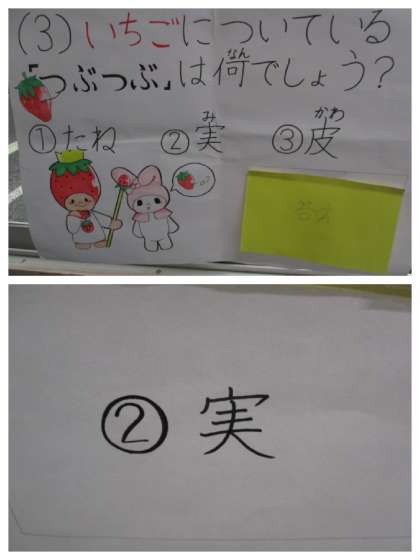 (3)いちごについている
「つぶつぶ」は何でしょう?
①たね ②実 ③皮
答え
②実